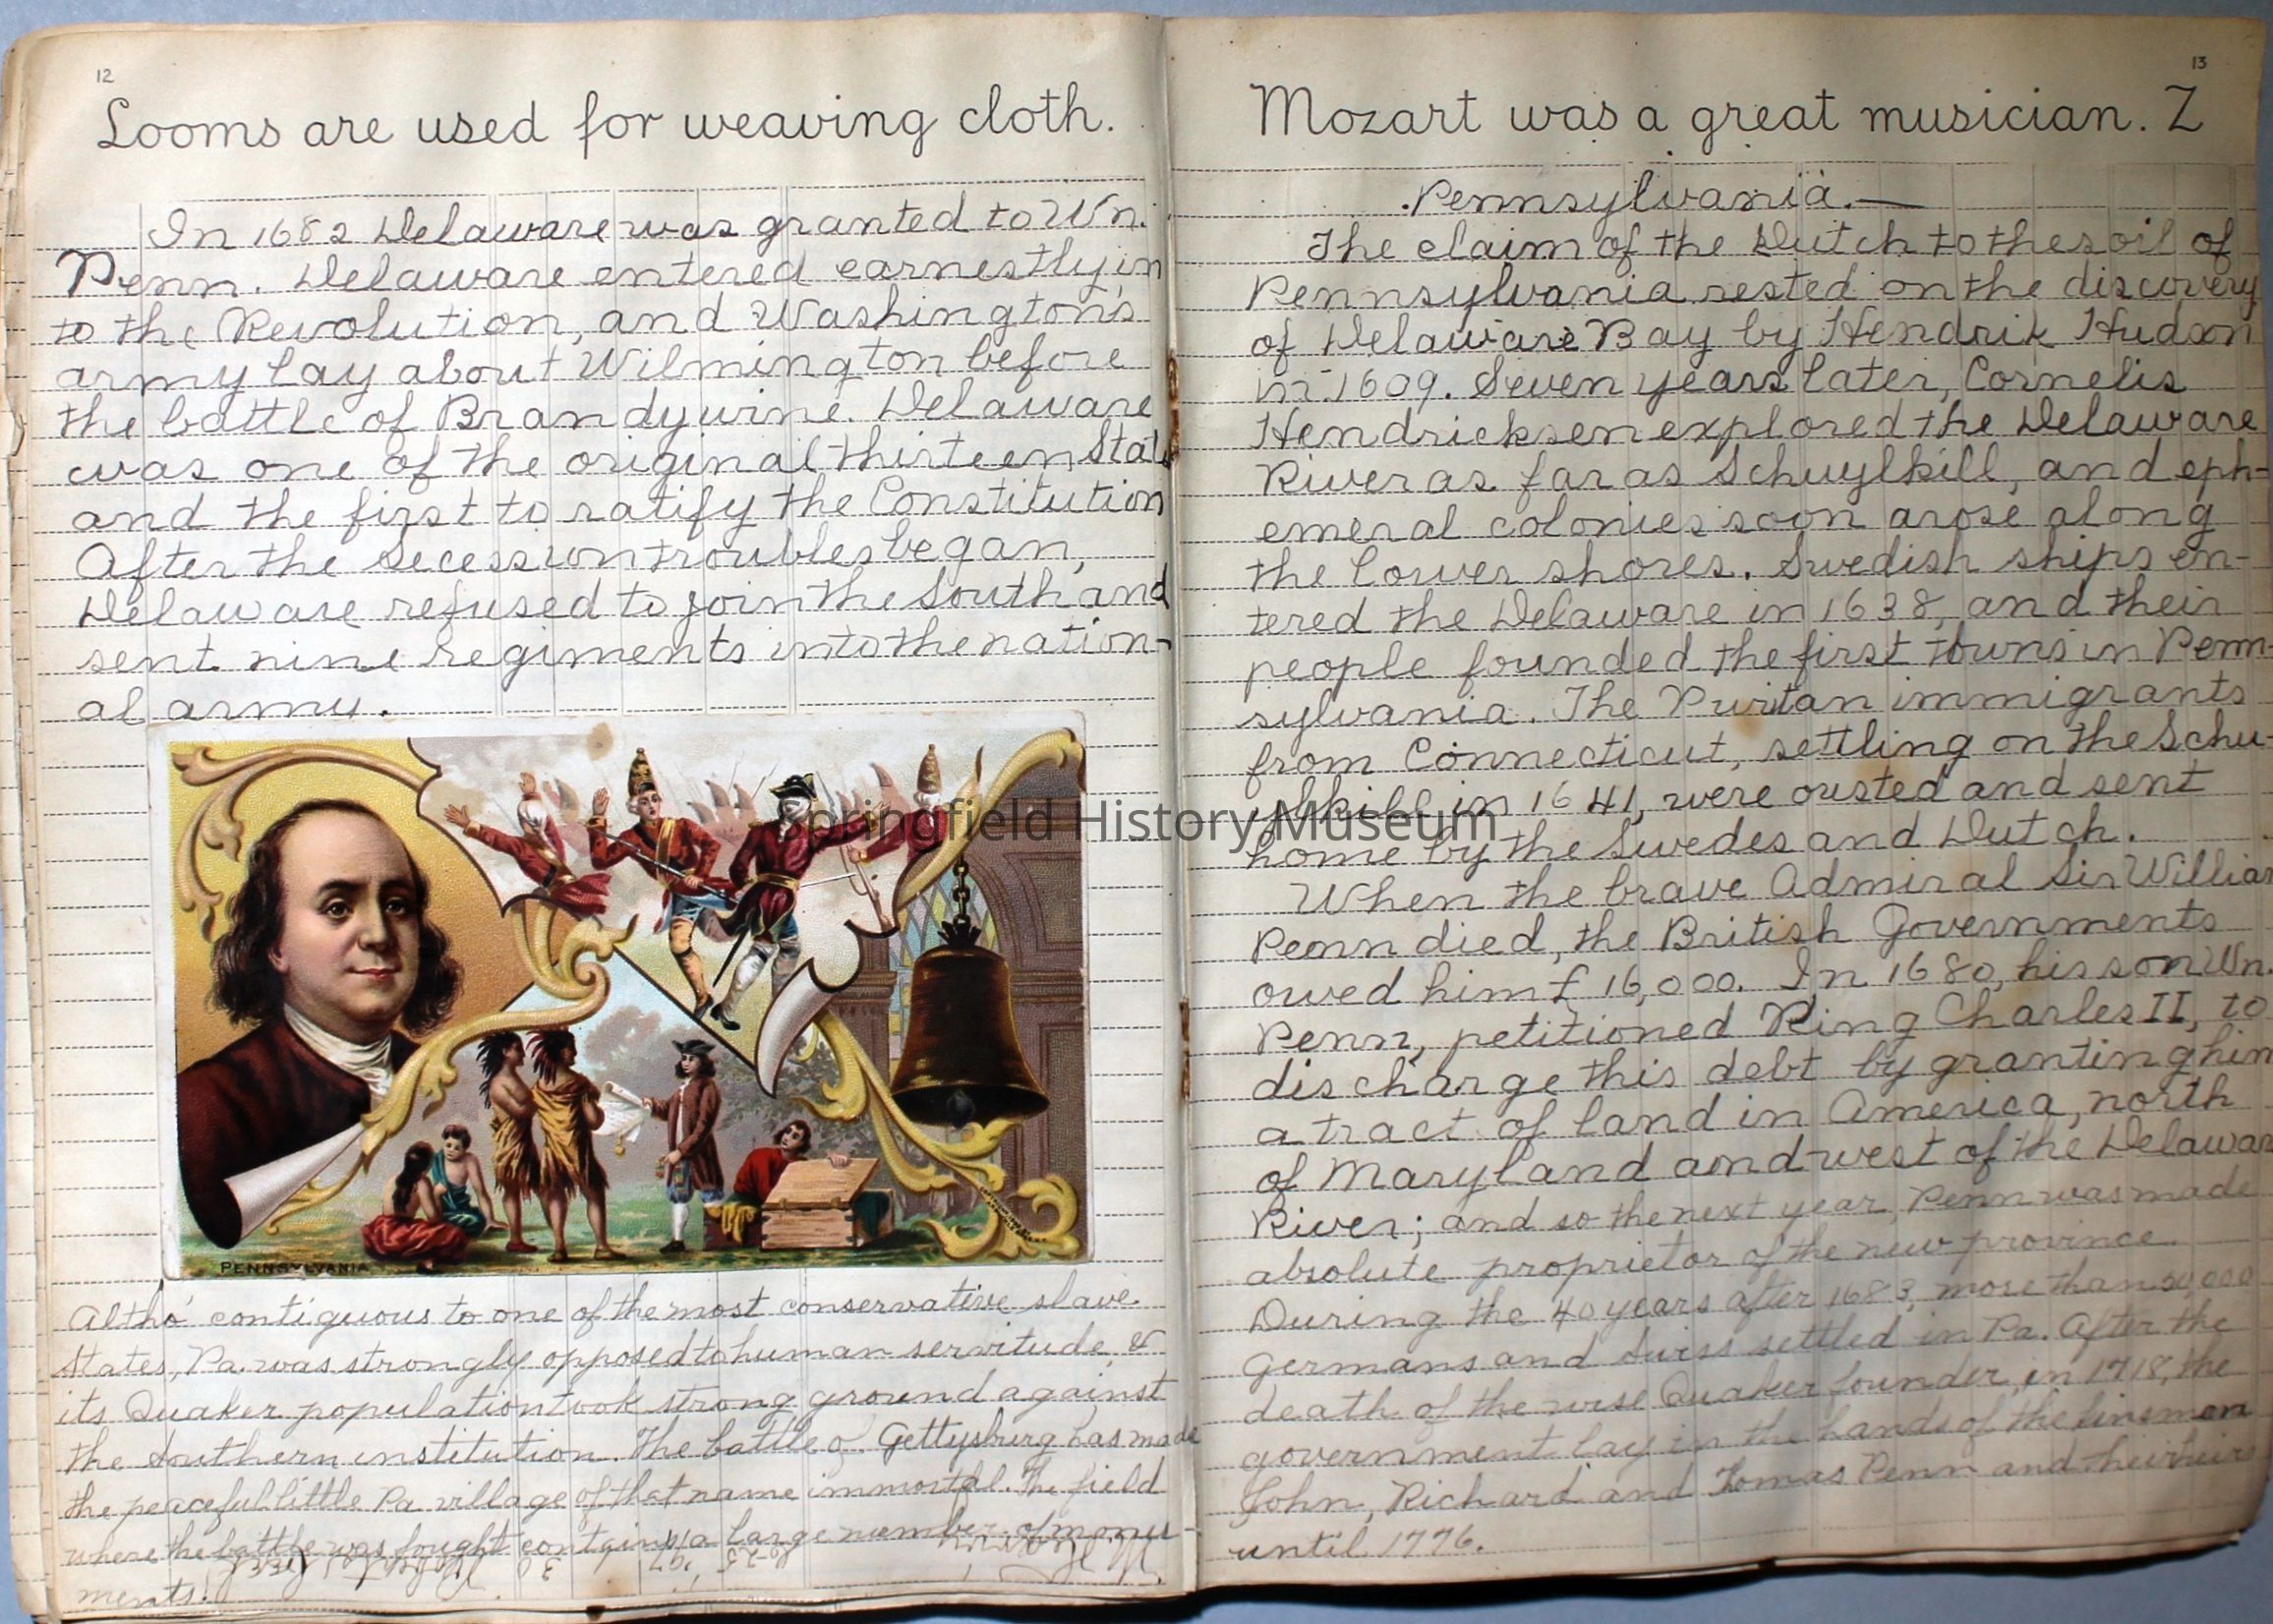 12
Looms are used for weaving cloth.
In 1682 Delaware was granted to Wn.
Penn. Delaware entered earnestly in
to the Revolution, and Washington's
army lay about Wilmington before
the battle of Brandywine. Delaware
was one of the original thirteen State
and the first to ratify the Constitution
After the Secession troubles began,
Delaware refused to join the South and
sent nine regiments into the nation-
al army.
PENNSYLVANIA
Altho' contiguous to one of the most conservative slave
States, Pa. was strongly opposed to human servitude, &
its Quaker population took strong ground against
the Southern institution. The battle of Gettysburg has made
the peaceful little Pa village of that name immortal. The field
where the battle was fought contains a large number of monu-
ments.
13
Mozart was a great musician. Z
Pennsylvania.—
The claim of the Dutch to the soil of
Pennsylvania rested on the discovery
of Delaware Bay by Hendrik Hudson
in 1609. Seven years later, Cornelis
Hendricksen explored the Delaware
River as far as Schuylkill, and eph-
emeral colonies soon arose along
the lower shores. Swedish ships en-
tered the Delaware in 1638, and their
people founded the first towns in Penn-
sylvania. The Puritan immigrants
from Connecticut, settling on the Schu-
ylkill in 1641, were ousted and sent
home by the Swedes and Dutch.
When the brave Admiral Sir William
Penn died, the British Governments
owed him £ 16,000. In 1680, his son Wn.
Penn, petitioned King Charles II, to
discharge this debt by granting him
a tract of land in America, north
of Maryland and west of the Delawar
River; and so the next year, Penn was made
absolute proprietor of the new province.
During the 40 years after 1683, more than 50,000
Germans and Swiss settled in Pa. After the
death of the wise Quaker founder, in 1718, the
government lay in the hands of the kinsmen
John, Richard and Tomas Penn and their heirs
until 1776.
Springfield History Museum